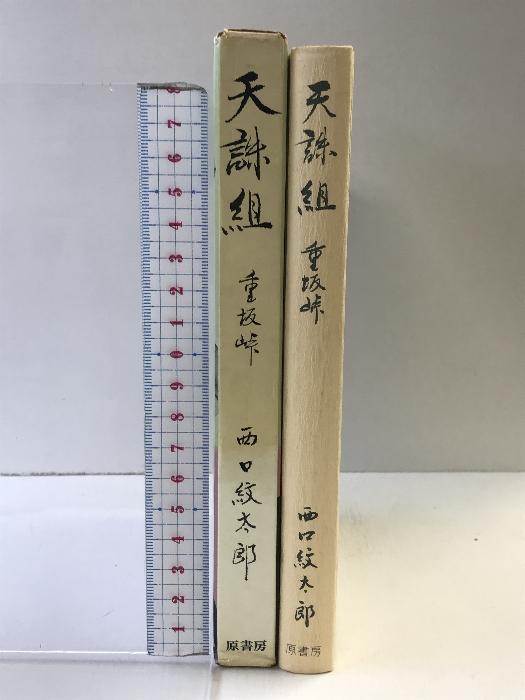 天誅組
重坂峠
西口紋太郎
原書房
天誅組
重坂峠
西口紋太郎
原書房
8
7
6
5
4
3
2
1
0
9
8
7
6
5
4
3
2
1